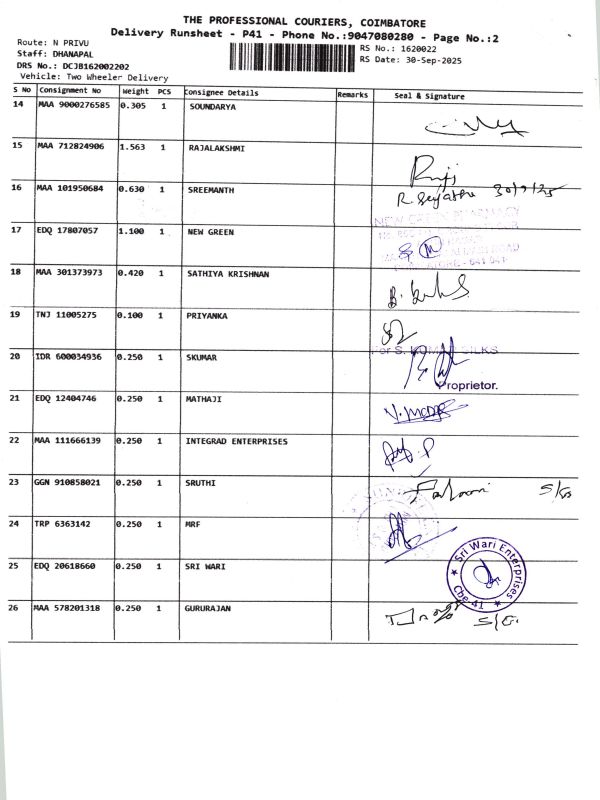 THE PROFESSIONAL COURIERS, COIMBATORE
Delivery Runsheet - P41 - Phone No.:9047080280 - Page No.:2
Route: N PRIVU
Staff: DHANAPAL
DRS No.: DCJB162002202
Vehicle: Two Wheeler Delivery
RS No.: 1620022
RS Date: 30-Sep-2025
S No Consignment No Weight PCS Consignee Details Remarks Seal & Signature
14 MAA 9000276585 0.305 1 SOUNDARYA
15 MAA 712824906 1.563 1 RAJALAKSHMI
16 MAA 101950684 0.630 1 SREEMANTH 30/9/25
17 EDQ 17807057 1.100 1 NEW GREEN
18 MAA 301373973 0.420 1 SATHIYA KRISHNAN
19 TNJ 11005275 0.100 1 PRIYANKA
20 IDR 600034936 0.250 1 SKUMAR
For S. KUMAR SILKS
Proprietor.
21 EDQ 12404746 0.250 1 MATHAJI
22 MAA 111666139 0.250 1 INTEGRAD ENTERPRISES
23 GGN 910858021 0.250 1 SRUTHI
24 TRP 6363142 0.250 1 MRF
25 EDQ 20618660 0.250 1 SRI WARI
Sri Wari Enterprises
Cbe-41
26 MAA 578201318 0.250 1 GURURAJAN